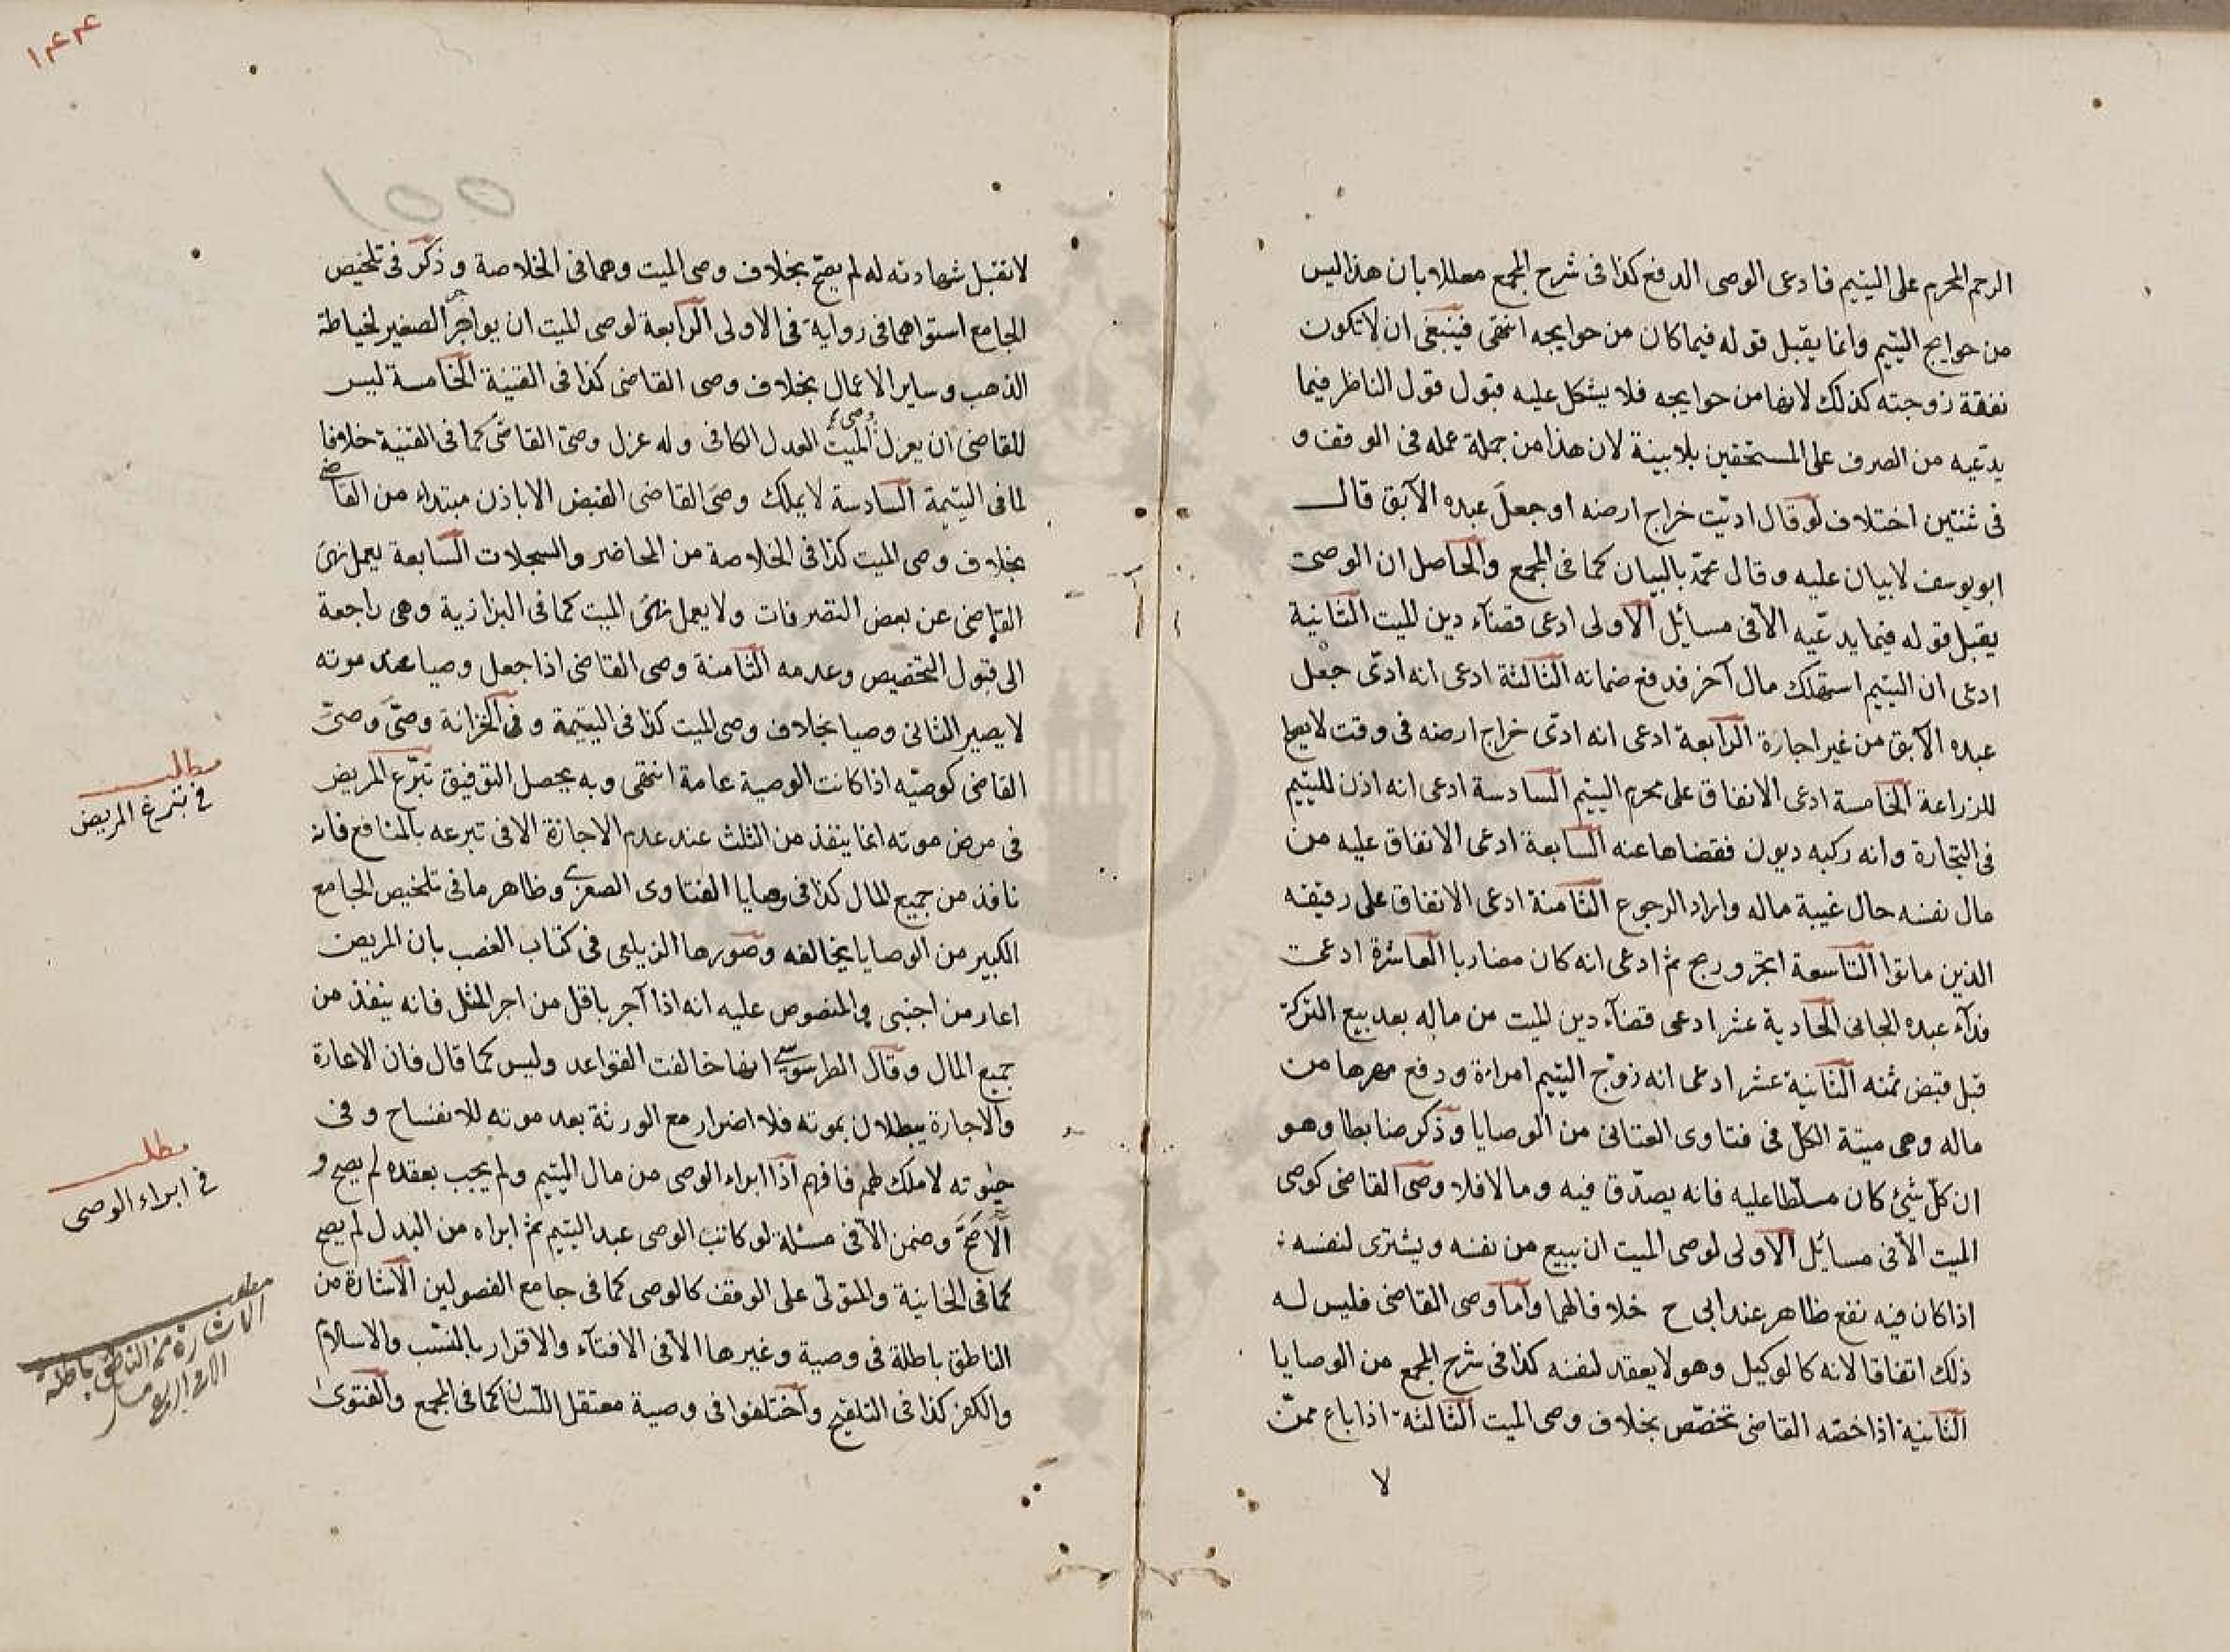 الرحم المحرم على اليتيم فادعى الوصى الدفع كذا فى شرح المجمع معللا بان هذا ليس
من حوايج اليتيم وانما يقبل قوله فيما كان من حوايجه انتهى فينبغى ان لا تكون
نفقة زوجته كذلك لانها من حوايجه فلا يشكل عليه قبول قول الناظر فيما
يدعيه من الصرف على المستحقين بلا بينة لان هذا من جملة عمله فى الوقف و
فى ثنتين اختلاف لو قال اديت خراج ارضه او جعل عبده الآبق قال
ابو يوسف لا بيان عليه وقال محمد بالبيان كما فى المجمع والحاصل ان الوصى
يقبل قوله فيما يدعيه الا فى مسائل الاولى ادعى قضآء دين الميت الثانية
ادعى ان اليتيم استهلك مال آخر فدفع ضمانه الثالثة ادعى انه ادى جعل
عبده الآبق من غير اجارة الرابعة ادعى انه ادى خراج ارضه فى وقت لا يصلح
للزراعة الخامسة ادعى الانفاق على محرم اليتيم السادسة ادعى انه اذن لليتيم
فى التجارة وانه ركبه ديون فقضاها عنه السابعة ادعى الانفاق عليه من
مال نفسه حال غيبة ماله واراد الرجوع الثامنة ادعى الانفاق على رقيقه
الذين ماتوا التاسعة اتجر وربح ثم ادعى انه كان مضاربا العاشرة ادعى
فدآء عبده الجانى الحادية عشر ادعى قضآء دين الميت من ماله بعد بيع التركة
قبل قبض ثمنه الثانية عشر ادعى انه زوج اليتيم امراءة ودفع مهرها من
ماله وهى ميتة الكل فى فتاوى العتابى من الوصايا وذكر ضابطا وهو
ان كل شئ كان مسلطا عليه فانه يصدق فيه وما لا فلا وصى القاضى كوصى
الميت الا فى مسائل الاولى لوصى الميت ان يبيع من نفسه ويشترى لنفسه
اذا كان فيه نفع ظاهر عند ابى ح خلافا لهما واما وصى القاضى فليس له
ذلك اتفاقا لانه كالوكيل وهو لا يعقد لنفسه كذا فى شرح المجمع من الوصايا
الثانية اذا خصه القاضى تخصص بخلاف وصى الميت الثالثة اذا باع ممن
لا
١٤٤
لا تقبل شهادته له لم يصح بخلاف وصى الميت وهما فى الخلاصة وذكر فى تلخيص
الجامع استواهما فى رواية فى الاولى الرابعة لوصى الميت ان يواجر الصغير لخياطة
الذهب وساير الاعمال بخلاف وصى القاضى كذا فى القنية الخامسة ليس
للقاضى ان يعزل وصى الميت العدل الكافى وله عزل وصى القاضى كما فى القنية خلافا
لما فى اليتيمة السادسة لا يملك وصى القاضى القبض الا باذن مبتداء من القاضى
بخلاف وصى الميت كذا فى الخلاصة من المحاضر والسجلات السابعة يعمل نهى
القاضى عن بعض التصرفات ولا يعمل نهى الميت كما فى البزازية وهى راجعة
الى قبول التخصيص وعدمه الثامنة وصى القاضى اذا جعل وصيا عند موته
لا يصير الثانى وصيا بخلاف وصى الميت كذا فى اليتيمة وفى الخزانة وصى وصى
القاضى كوصيه اذا كانت الوصية عامة انتهى وبه يحصل التوفيق تبرع المريض
فى مرض موته انما ينفذ من الثلث عند عدم الاجازة الا فى تبرعه بالمنافع فانه
نافذ من جميع المال كذا فى وصايا الفتاوى الصغرى وظاهر ما فى تلخيص الجامع
الكبير من الوصايا يخالفه وصورها الزيلعى فى كتاب الغصب بان المريض
اعار من اجنبى والمنصوص عليه انه اذا آجر باقل من اجر المثل فانه ينفذ من
جميع المال وقال الطرسوسى انها خالفت القواعد وليس كما قال فان الاعارة
والاجارة يبطلان بموته فلا اضرار مع الورثة بعد موته للانفساح وفى
حيٰوته لا ملك لهم فافهم اذا ابراء الوصى من مال اليتيم ولم يجب بعقده لم يصح و
الا صح وضمن الا فى مسئلة لو كاتب الوصى عبد اليتيم ثم ابراه من البدل لم يصح
كما فى الخانية والمتولى على الوقف كالوصى كما فى جامع الفصولين الاشارة من
الناطق باطلة فى وصية وغيرها الا فى الافتآء والاقرار بالنسب والاسلام
والكفر كذا فى التلقيح واختلفوا فى وصية معتقل اللسان كما فى المجمع والفتوى
مطالب
فى تبرع المريض
مطلب
فى ابراء الوصى
مطلوب
الاشارة من الناطق باطلة